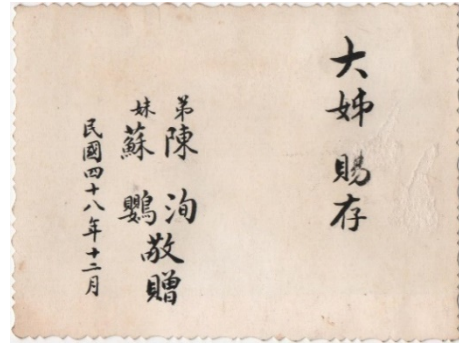 大姊 賜存
弟 陳洵
妹 蘇鸚
敬贈
民國四十八年十二月